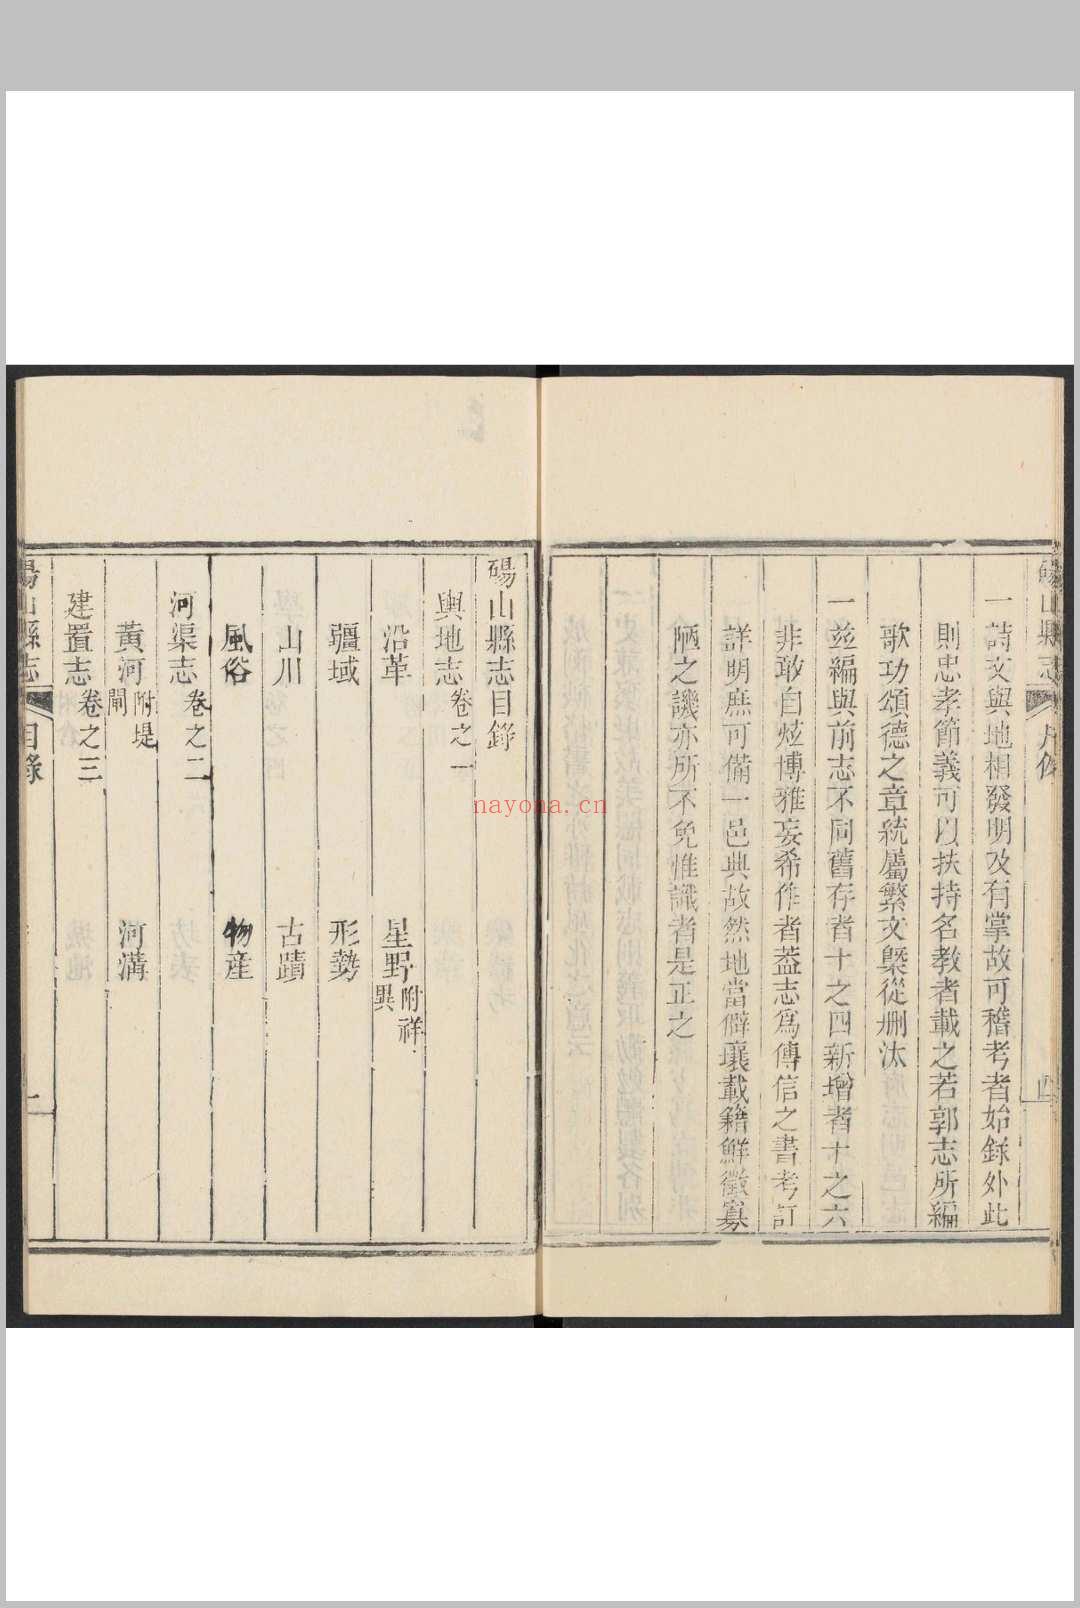 碭山縣志
四
一詩文與地相發明及有掌故可稽考者始錄外此
則忠孝節義可以扶持名教者載之若郭志所編
歌功頌德之章統屬繁文槩從刪汰
一茲編與前志不同舊存者十之四新增者十之六
非敢自炫博雅妄希作者葢志爲傳信之書考訂
詳明庶可備一邑典故然地當僻壤載籍鮮徵寡
陋之譏亦所不免惟識者是正之
碭山縣志目錄
輿地志 卷之一
沿革 星野 附祥異
疆域 形勢
山川 古蹟
風俗 物產
河渠志 卷之二
黃河 附堤閘 河溝
建置志 卷之三
碭山縣志 目錄 一
nayona.cn